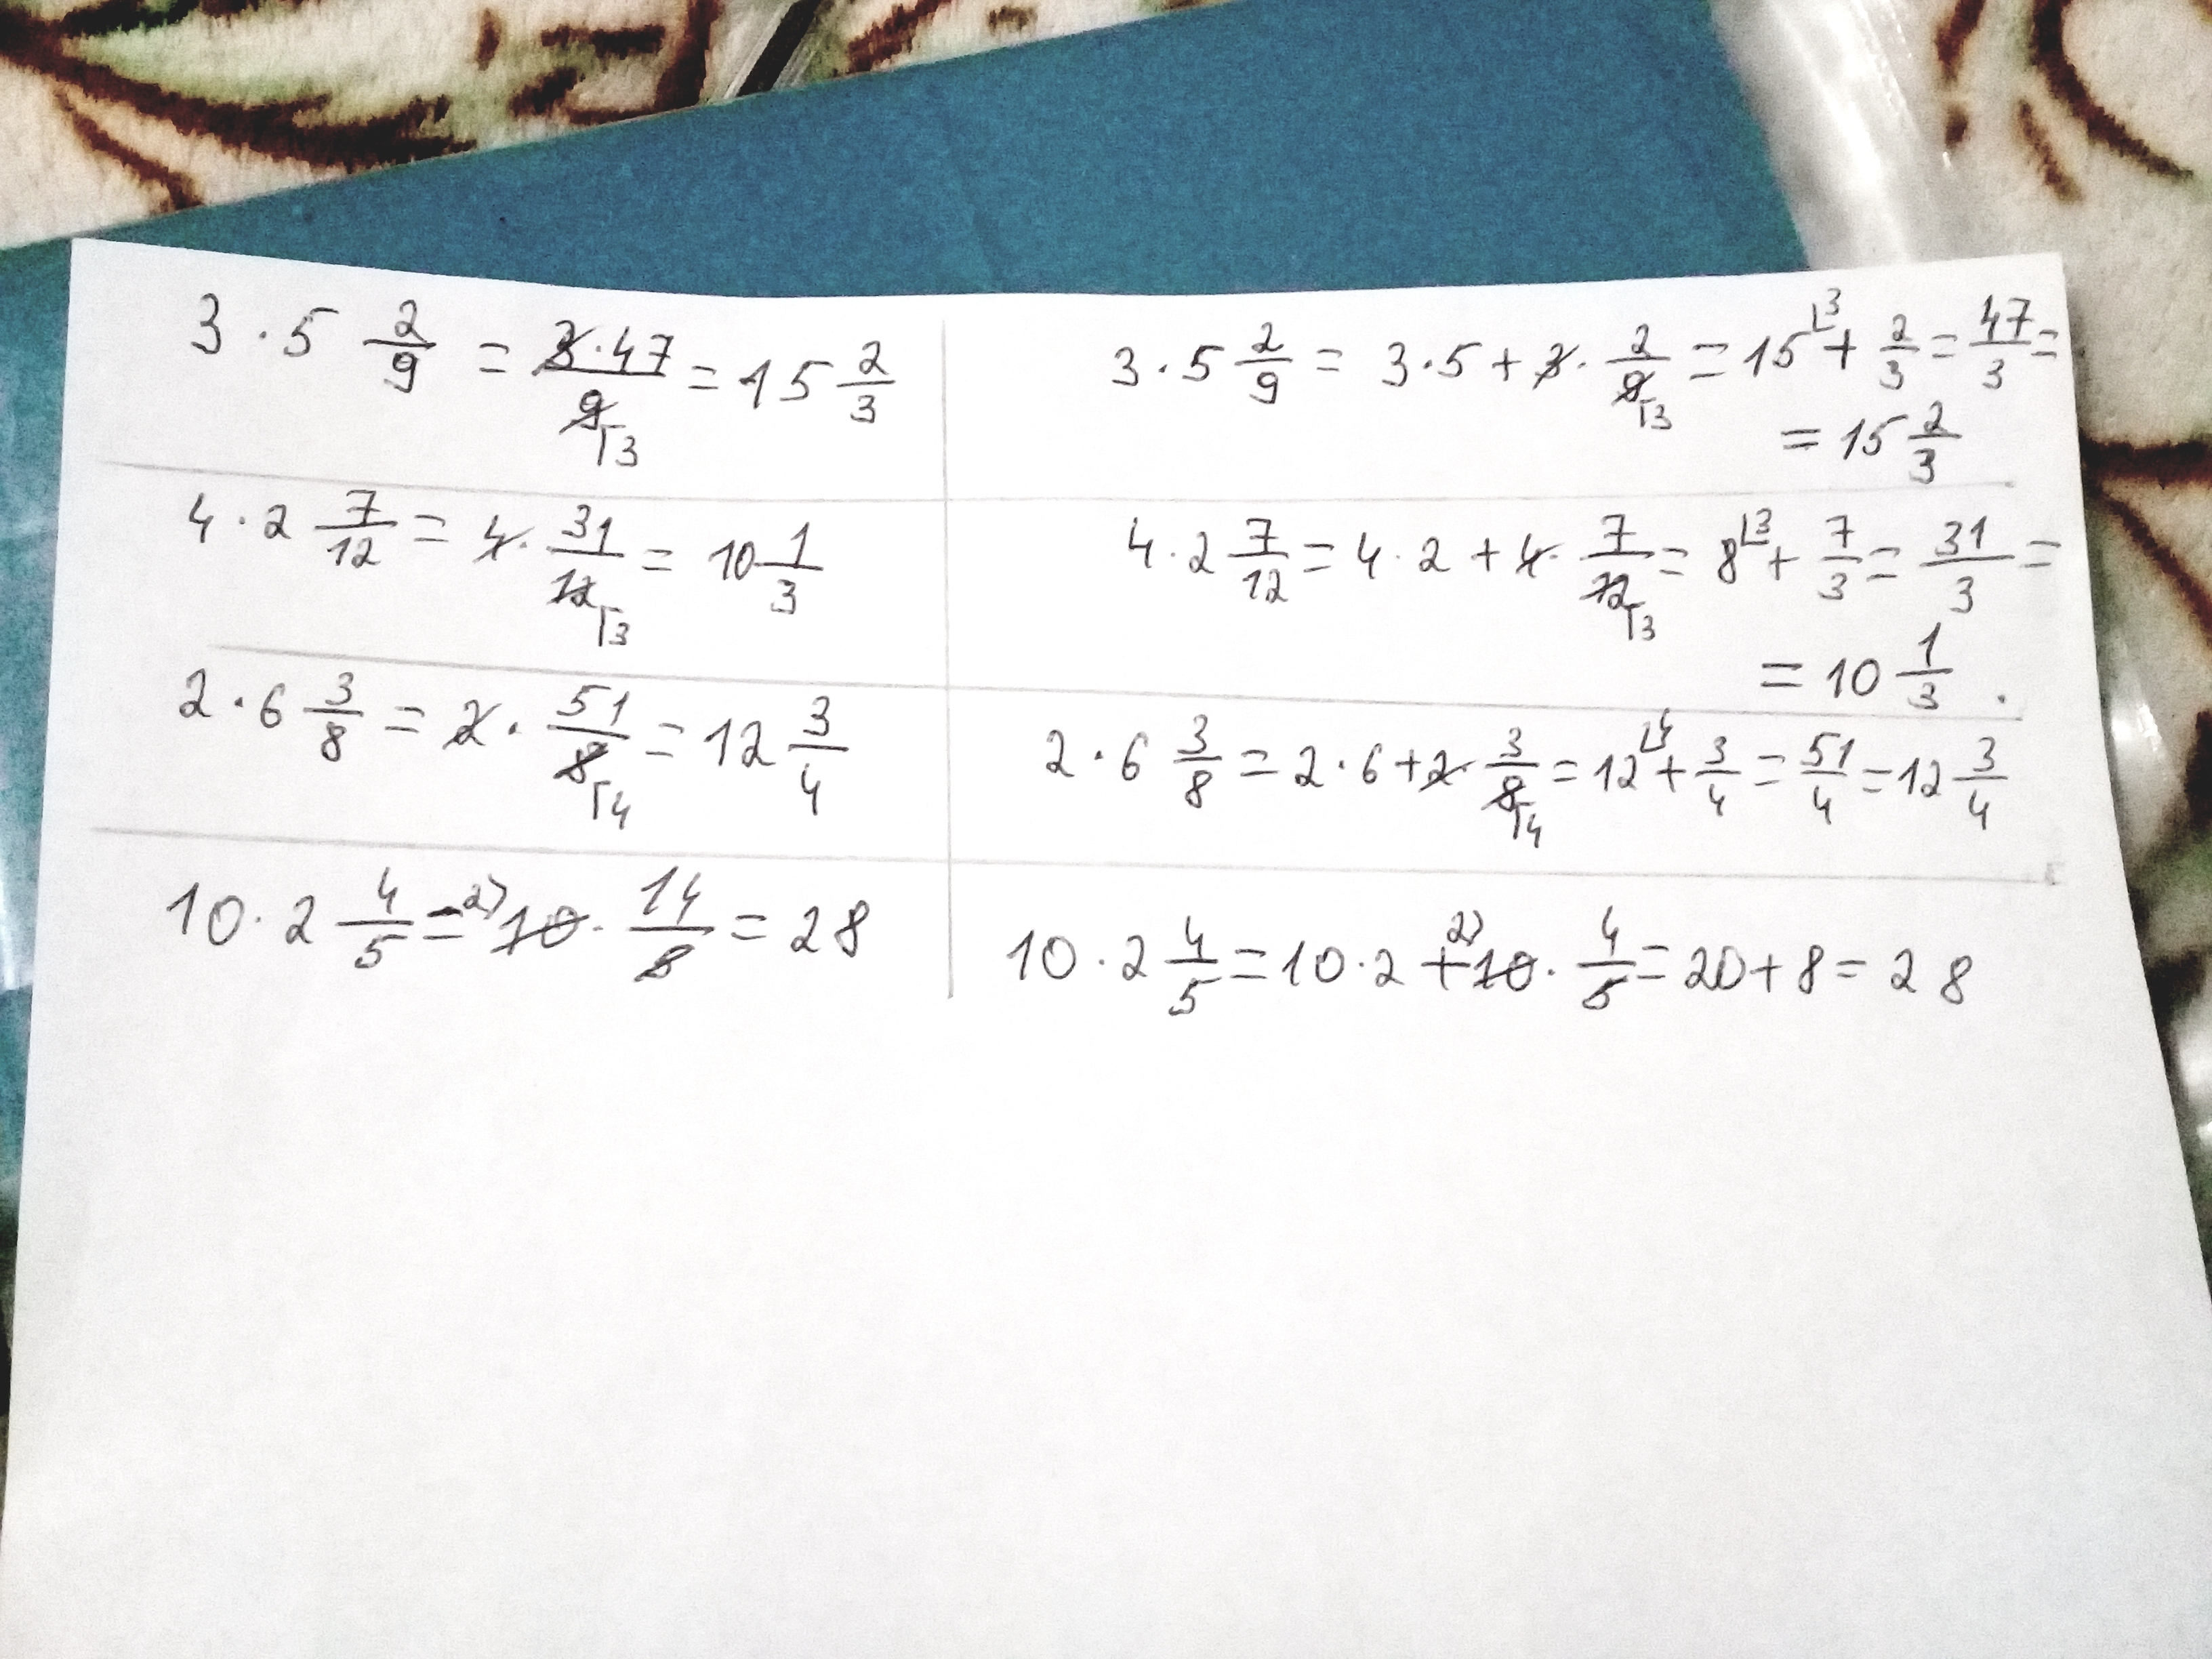 3 · 5 2/9 = 3·47/9⌈3 = 15 2/3
3 · 5 2/9 = 3·5 + 3 · 2/9⌈3 = 15⌊3 + 2/3 = 47/3 =
= 15 2/3
4 · 2 7/12 = 4 · 31/12⌈3 = 10 1/3
4 · 2 7/12 = 4 · 2 + 4 · 7/12⌈3 = 8⌊3 + 7/3 = 31/3 =
= 10 1/3 .
2 · 6 3/8 = 2 · 51/8⌈4 = 12 3/4
2 · 6 3/8 = 2 · 6 + 2 · 3/8⌈4 = 12⌊4 + 3/4 = 51/4 = 12 3/4
10 · 2 4/5 = 2) 10 · 14/5 = 28
10 · 2 4/5 = 10 · 2 + 2) 10 · 4/5 = 20 + 8 = 28